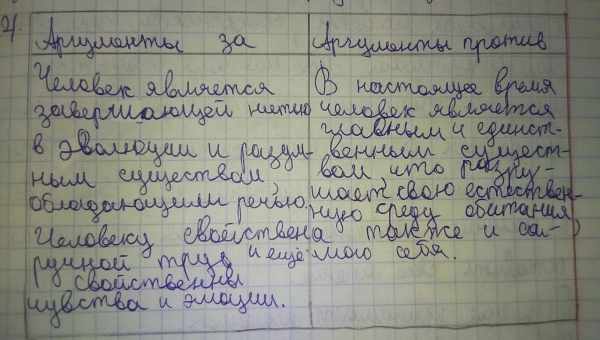 4.
Аргументы за
Человек является
завершающей нитью
в эволюции и разум-
ным существом,
обладающем речью.
Человеку свойствен
ручной труд и ещё
свойственны
чувства и эмоции.
Аргументы против
В настоящее время
человек является
главным и единст-
венным сущест-
вом что разру-
шает свою естествен-
ную среду обитания
а также и са-
мого себя.